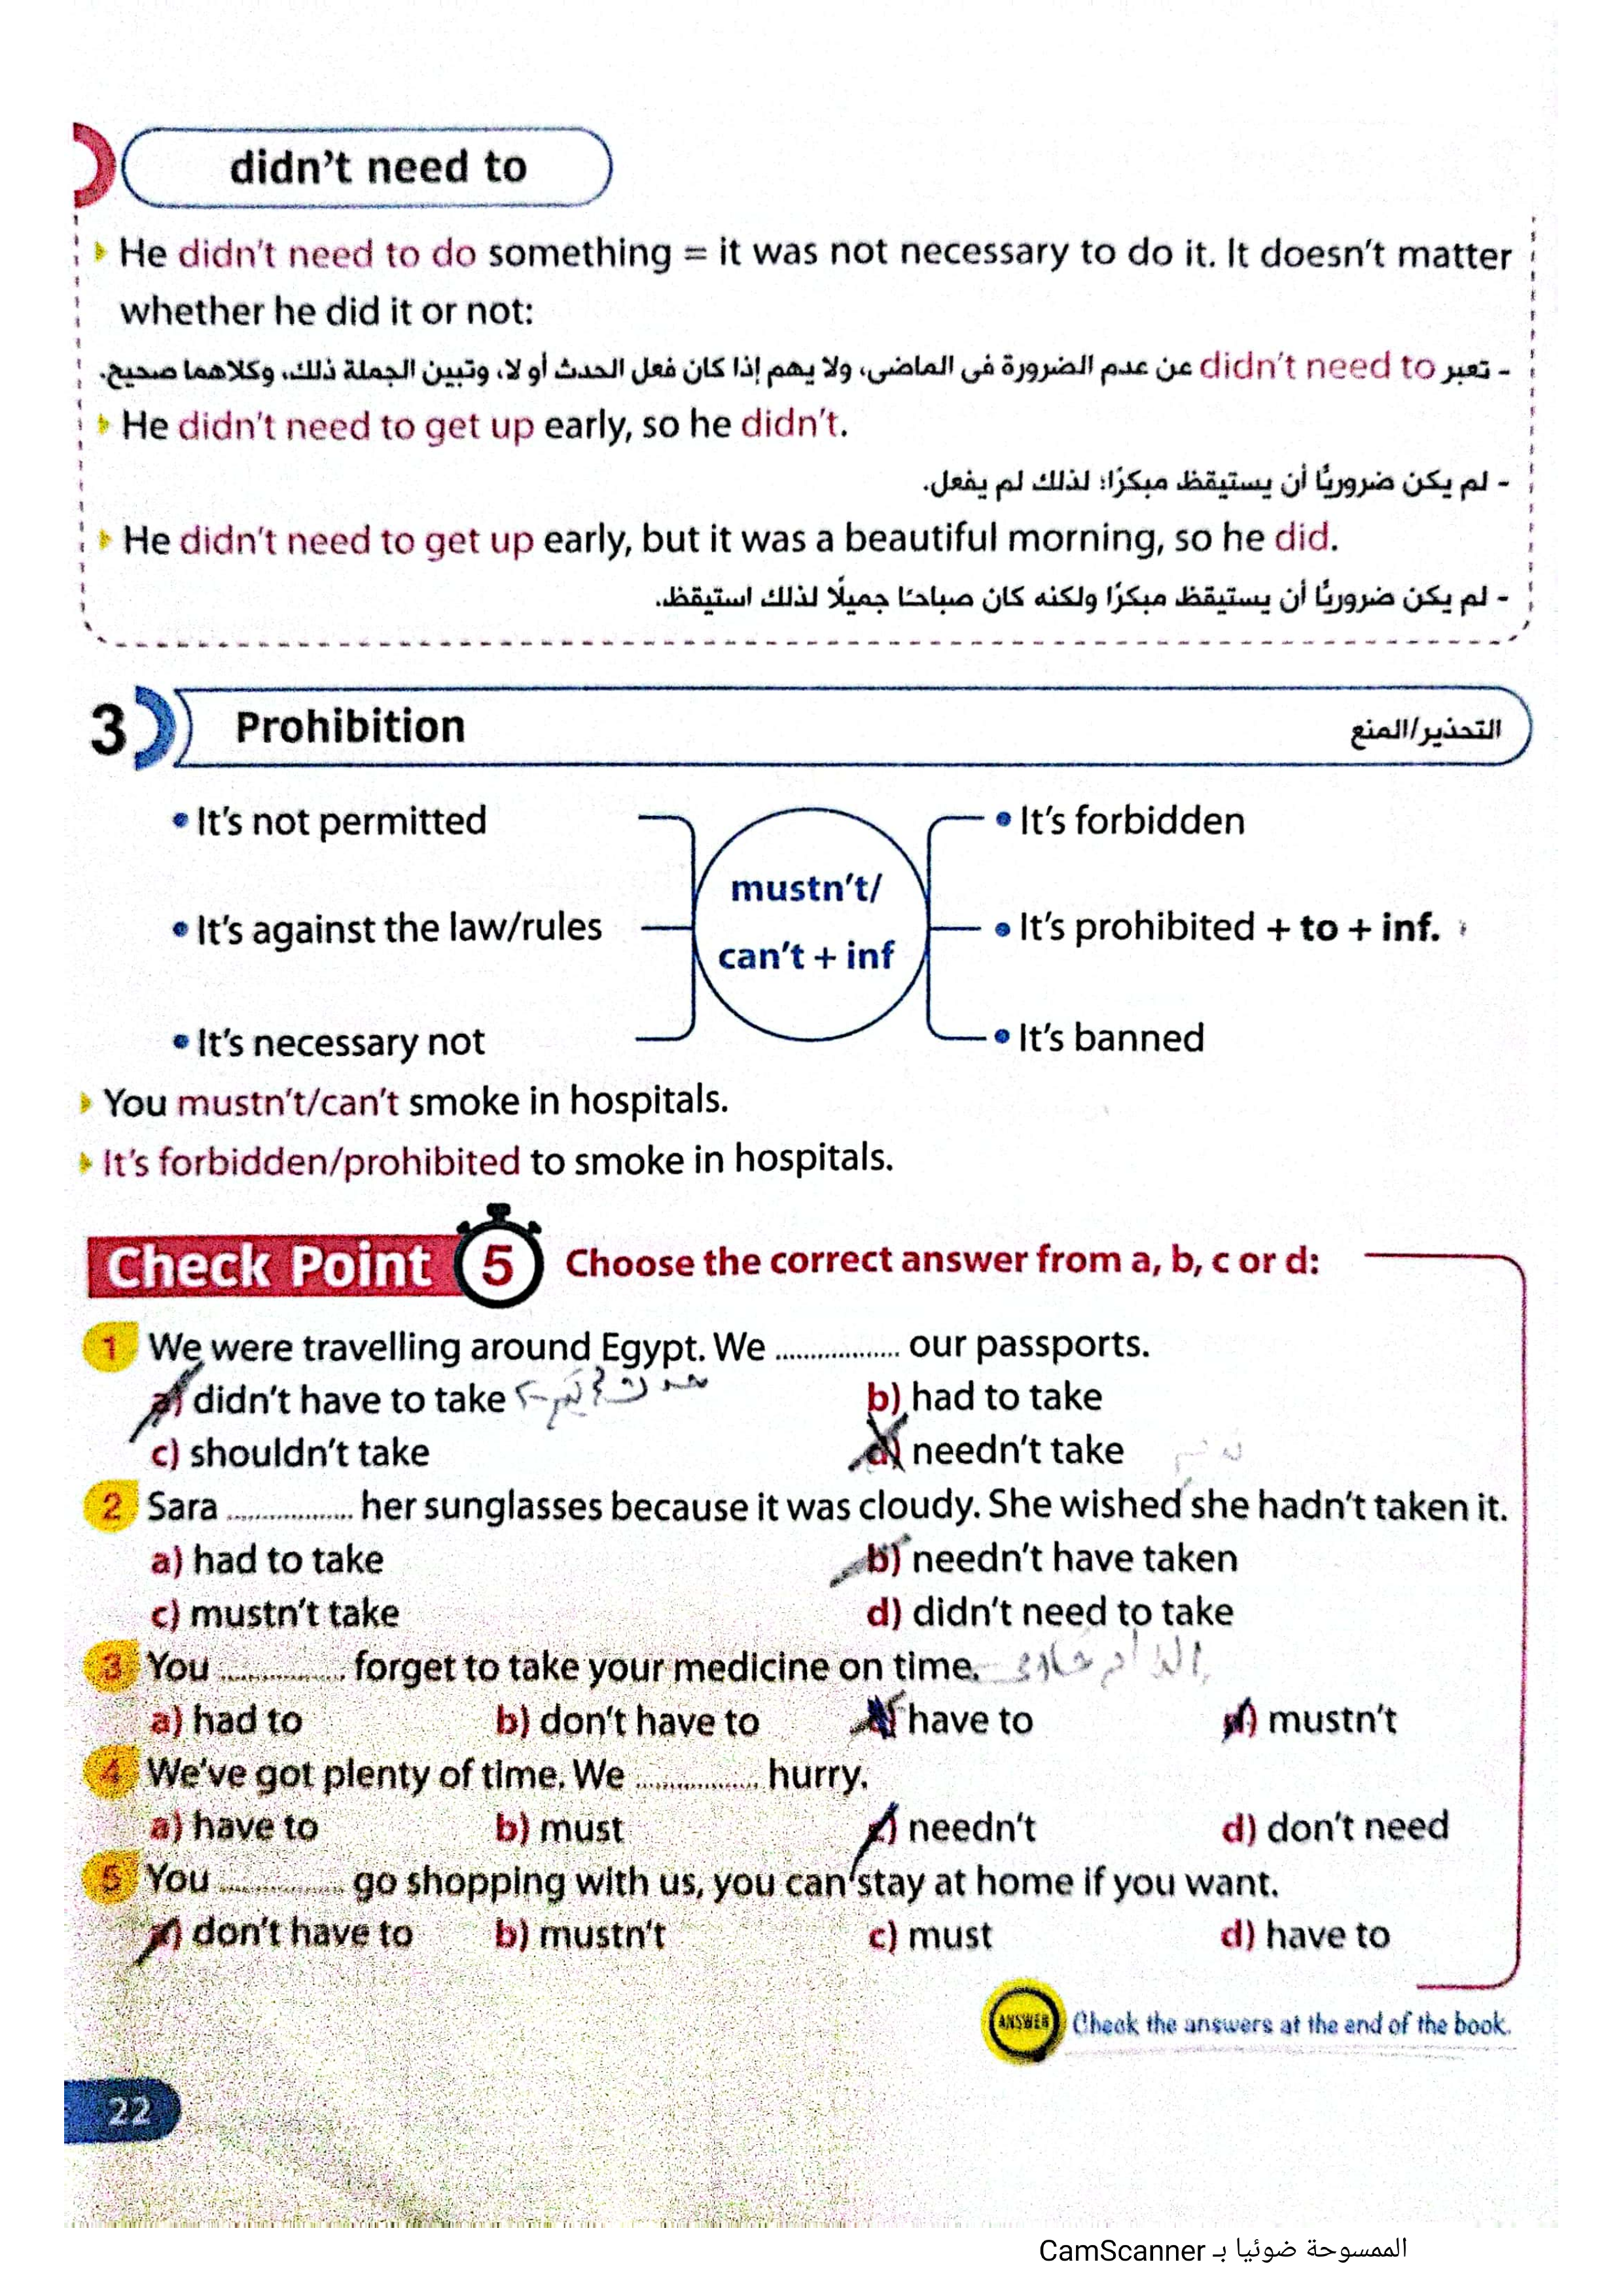 didn't need to
He didn't need to do something = it was not necessary to do it. It doesn't matter
whether he did it or not:
- تعبر didn't need to عن عدم الضرورة فى الماضى، ولا يهم إذا كان فعل الحدث أو لا، وتبين الجملة ذلك، وكلاهما صحيح.
He didn't need to get up early, so he didn't.
- لم يكن ضروريًا أن يستيقظ مبكرًا؛ لذلك لم يفعل.
He didn't need to get up early, but it was a beautiful morning, so he did.
- لم يكن ضروريًا أن يستيقظ مبكرًا ولكنه كان صباحًا جميلًا لذلك استيقظ.
3 Prohibition التحذير/المنع
• It's not permitted • It's forbidden
mustn't/
• It's against the law/rules • It's prohibited + to + inf.
can't + inf
• It's necessary not • It's banned
You mustn't/can't smoke in hospitals.
It's forbidden/prohibited to smoke in hospitals.
Check Point 5 Choose the correct answer from a, b, c or d:
1 We were travelling around Egypt. We .................. our passports.
a) didn't have to take b) had to take
c) shouldn't take d) needn't take
2 Sara .................. her sunglasses because it was cloudy. She wished she hadn't taken it.
a) had to take b) needn't have taken
c) mustn't take d) didn't need to take
3 You .................. forget to take your medicine on time.
a) had to b) don't have to c) have to d) mustn't
4 We've got plenty of time. We .................. hurry.
a) have to b) must c) needn't d) don't need
5 You .................. go shopping with us, you can stay at home if you want.
a) don't have to b) mustn't c) must d) have to
ANSWER Check the answers at the end of the book.
22
الممسوحة ضوئيا بـ CamScanner